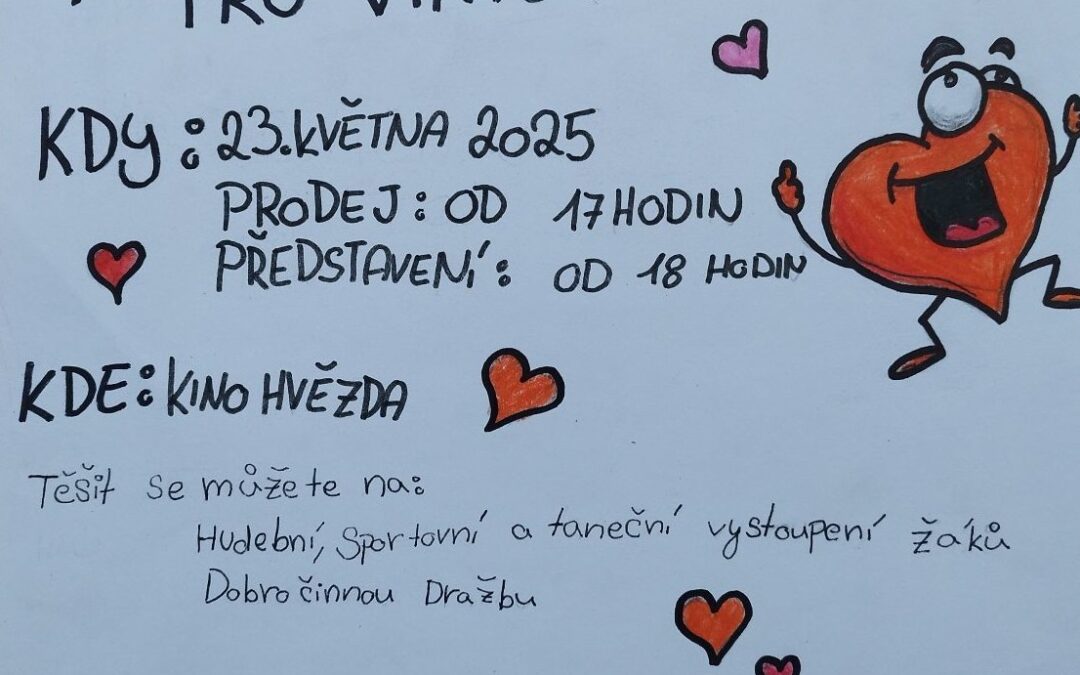 PRO
KDY: 23. KVĚTNA 2025
PRODEJ: OD 17 HODIN
PŘEDSTAVENÍ: OD 18 HODIN
KDE: KINO HVĚZDA
Těšit se můžete na:
Hudební, Sportovní a taneční vystoupení žáků
Dobročinnou Dražbu